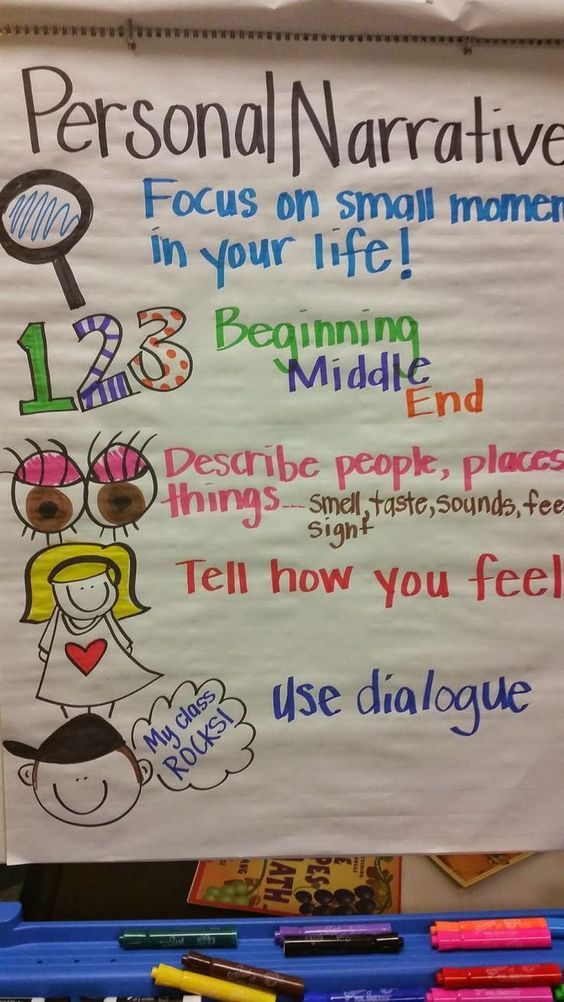 Personal Narrative
Focus on small momen
in your life!
123 Beginning
Middle
End
Describe people, places
things... smell, taste, sounds, fee
signt
Tell how you feel
use dialogue
My class
ROCKS!